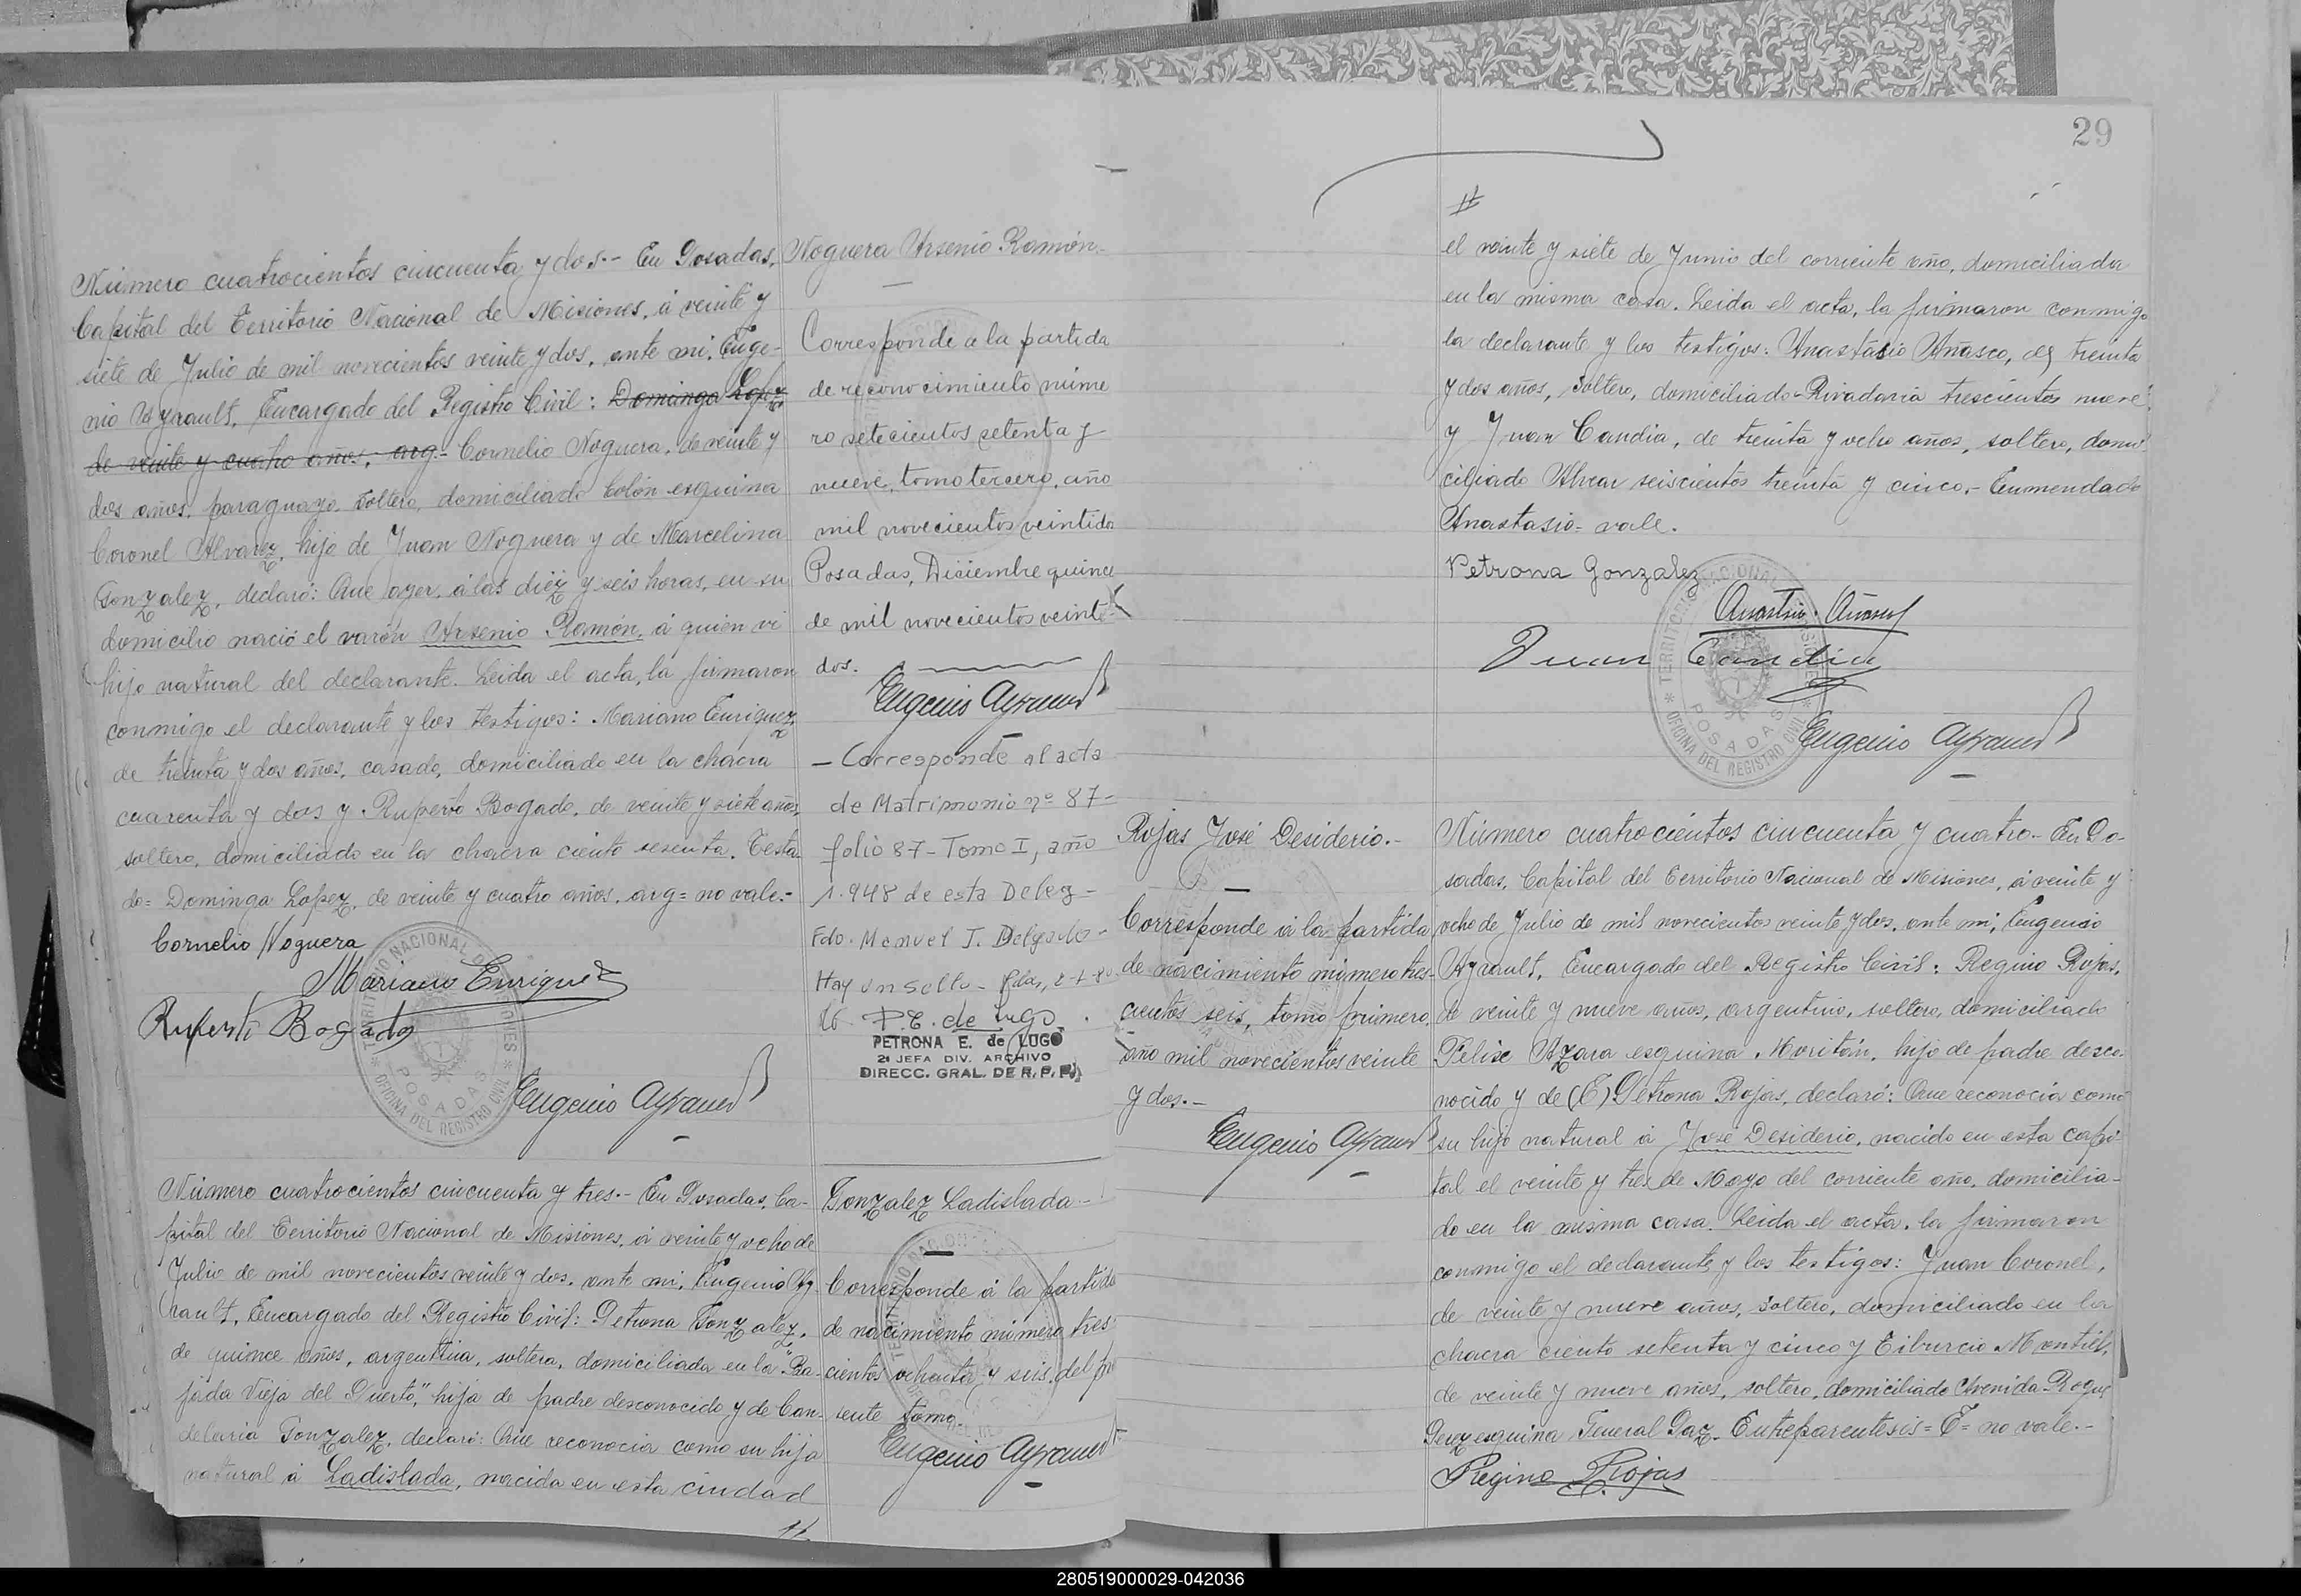 Número cuatrocientos cincuenta y dos.- En Posadas,
Capital del Territorio Nacional de Misiones, á veinte y
siete de Julio de mil novecientos veinte y dos, ante mi, Euge-
nio Ayrault, Encargado del Registro Civil: Dominga Lopez
de veinte y cuatro años, arg- Cornelio Noguera, de veinte y
dos años, paraguayo, soltero, domiciliado Colón esquina
Coronel Alvarez, hijo de Juan Noguera y de Marcelina
Gonzalez, declaró: Que ayer, á las diez y seis horas, en su
domicilio nació el varón Arsenio Ramón, á quien vi
hijo natural del declarante. Leida el acta, la firmaron
conmigo el declarante y los testigos: Mariano Enriquez,
de treinta y dos años, casado, domiciliado en la chacra
cuarenta y dos y Ruperto Bogado, de veinte y siete años,
soltero, domiciliado en la chacra ciento sesenta. Testa-
do= Dominga Lopez, de veinte y cuatro años, arg= no vale.-
Cornelio Noguera
Mariano Enriquez
Ruperto Bogado
Eugenio Ayrault
Noguera Arsenio Ramón.-
Corresponde a la partida
de reconocimiento núme
ro setecientos setenta y
nueve, tomo tercero, año
mil novecientos veintidos
Posadas, Diciembre quince
de mil novecientos veinti-
dos.
Eugenio Ayrault
- Corresponde al acta
de Matrimonio nº 87-
folio 87- Tomo I, año
1.948 de esta Deleg-
Fdo. Manuel J. Delgado-
Hay un sello-
P.E. de Lugo
PETRONA E. de LUGO
2ª JEFA DIV. ARCHIVO
DIRECC. GRAL. DE R. P. P.
Número cuatrocientos cincuenta y tres.- En Posadas, Ca-
pital del Territorio Nacional de Misiones, á veinte y ocho de
Julio de mil novecientos veinte y dos, ante mi, Eugenio Ay-
rault, Encargado del Registro Civil: Petrona Gonzalez,
de quince años, argentina, soltera, domiciliada en la "Ba-
jada Vieja del Puerto," hija de padre desconocido y de Can-
delaria Gonzalez, declaró: Que reconocia como su hija
natural á Ladislada, nacida en esta ciudad
Gonzalez Ladislada.-
Corresponde á la partida
de nacimiento número tres-
cientos ochenta y seis, del pre
sente tomo.
Eugenio Ayrault
29
el veinte y siete de Junio del corriente año, domiciliada
en la misma casa. Leida el acta, la firmaron conmigo
la declarante y los testigos: Anastasio Añasco, de treinta
y dos años, soltero, domiciliado Rivadavia trescientos nueve
y Juan Candia, de treinta y ocho años, soltero, domi-
ciliado Alvear seiscientos treinta y cinco.- Enmendado
Anastasio= vale.
Petrona Gonzalez
Anastasio Añasco
Juan Candia
TERRITORIO NACIONAL DE MISIONES
POSADAS
OFICINA DEL REGISTRO CIVIL
Eugenio Ayrault
Rojas José Desiderio.-
Corresponde á la partida
de nacimiento número tres-
cientos seis, tomo primero,
año mil novecientos veinte
y dos.-
Eugenio Ayrault
Número cuatrocientos cincuenta y cuatro.- En Po-
sadas, Capital del Territorio Nacional de Misiones, á veinte y
ocho de Julio de mil novecientos veinte y dos, ante mi, Eugenio
Ayrault, Encargado del Registro Civil: Regino Rojas,
de veinte y nueve años, argentino, soltero, domiciliado
Felix Azara esquina Moritán, hijo de padre desco-
nocido y de (E) Petrona Rojas, declaró: Que reconocia como
su hijo natural á José Desiderio, nacido en esta capi-
tal el veinte y tres de Mayo del corriente año, domicilia-
do en la misma casa. Leida el acta, la firmaron
conmigo el declarante y los testigos: Juan Coronel,
de veinte y nueve años, soltero, domiciliado en la
chacra ciento setenta y cinco y Tiburcio Montiel,
de veinte y nueve años, soltero, domiciliado Avenida Roque
Perez esquina General Paz. Entreparentesis= E= no vale.-
Regino Rojas
280519000029-042036